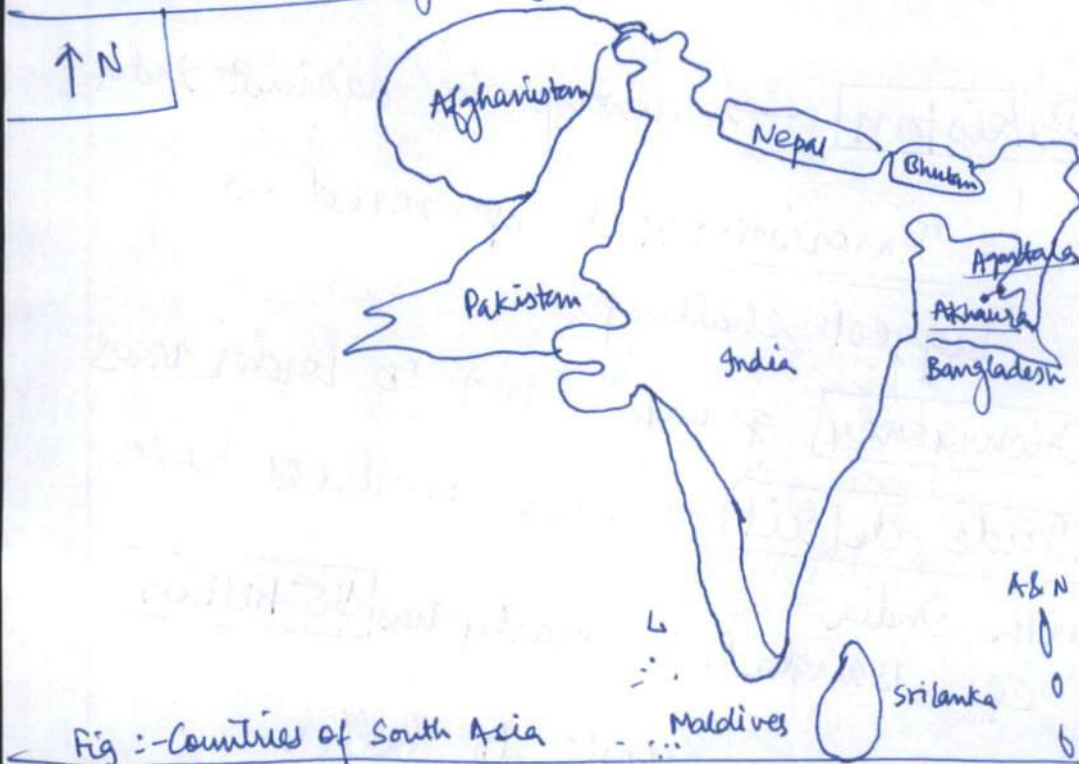 ↑ N
Afghanistan
Nepal
Bhutan
Agartala
Akhaura
Pakistan
India
Bangladesh
A & N
L
Srilanka
Maldives
Fig :- Countries of South Asia